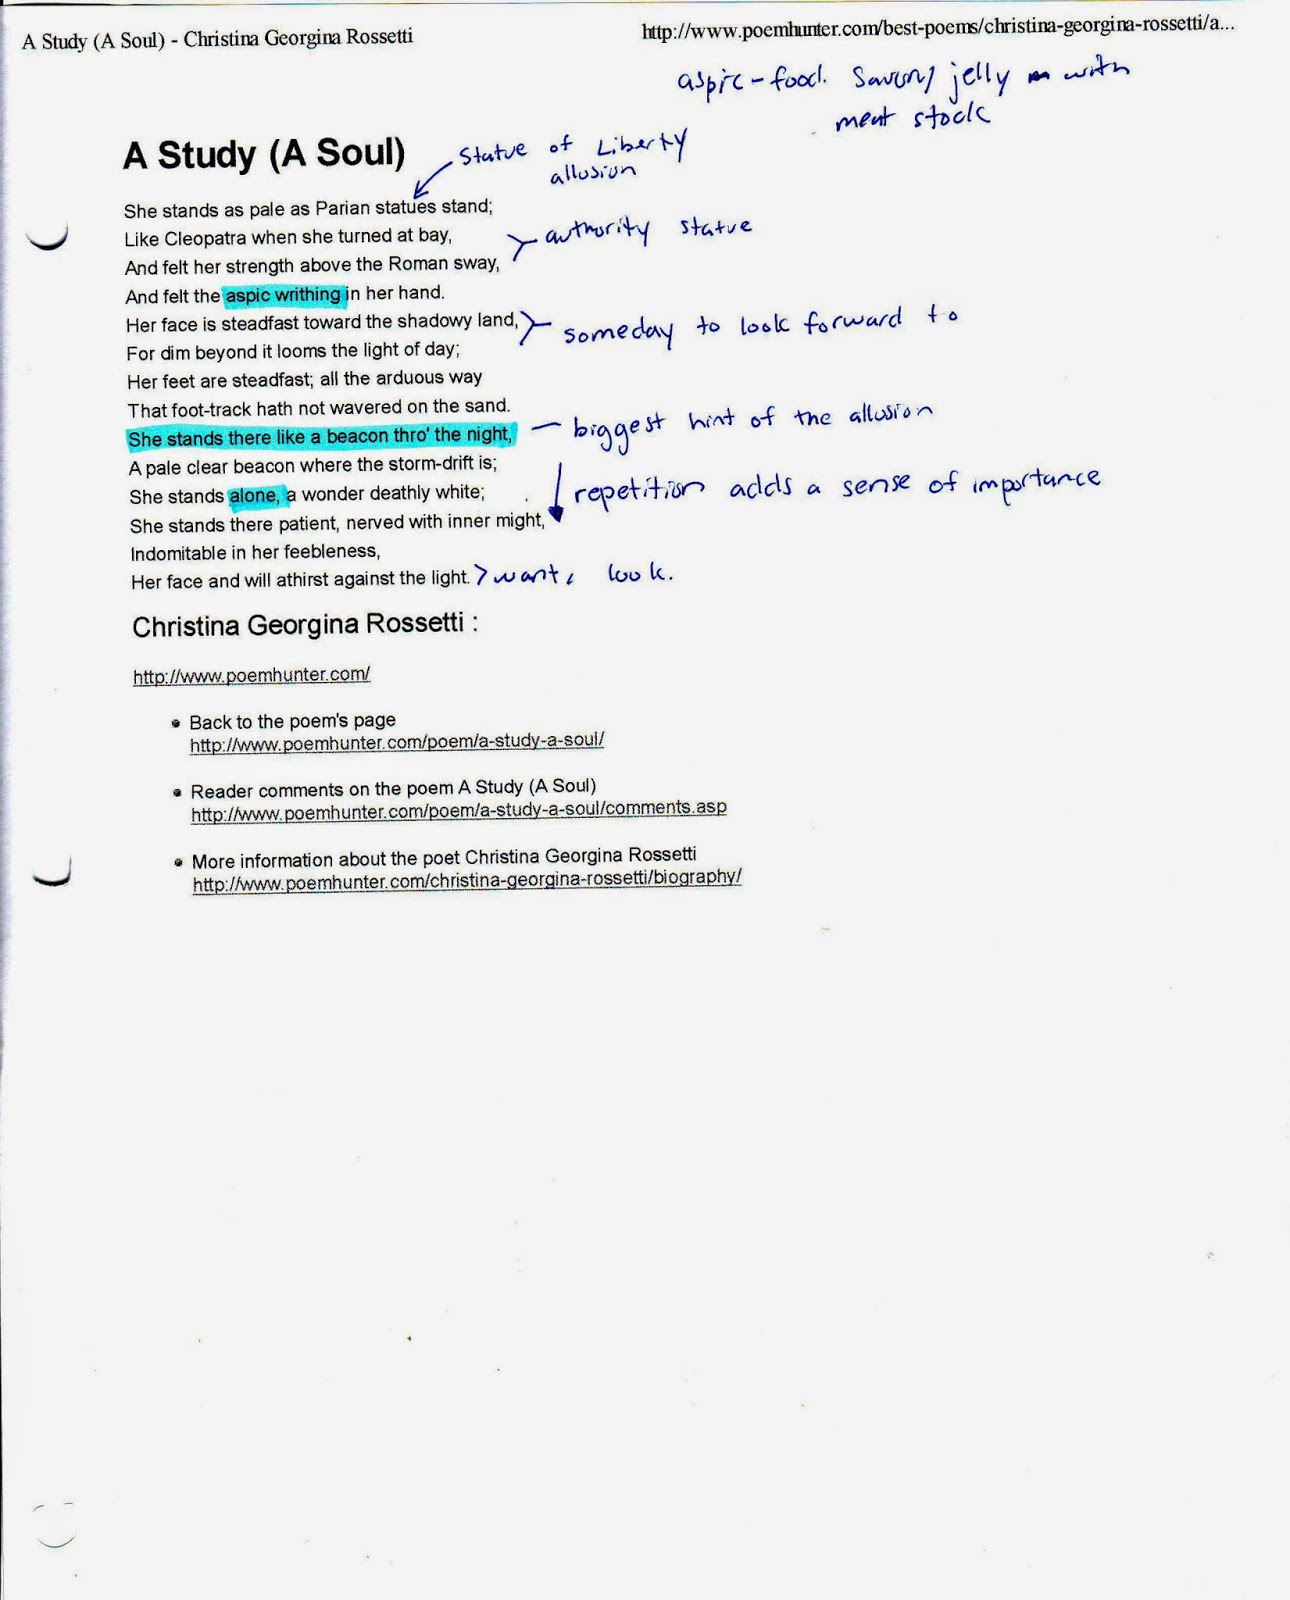 A Study (A Soul) - Christina Georgina Rossetti
http://www.poemhunter.com/best-poems/christina-georgina-rossetti/a...
aspic - food. Savory jelly with
meat stock
A Study (A Soul)
Statue of Liberty
allusion
She stands as pale as Parian statues stand;
Like Cleopatra when she turned at bay,
authority statue
And felt her strength above the Roman sway,
And felt the aspic writhing in her hand.
Her face is steadfast toward the shadowy land,
someday to look forward to
For dim beyond it looms the light of day;
Her feet are steadfast; all the arduous way
That foot-track hath not wavered on the sand.
She stands there like a beacon thro' the night,
biggest hint of the allusion
A pale clear beacon where the storm-drift is;
She stands alone, a wonder deathly white;
repetition adds a sense of importance
She stands there patient, nerved with inner might,
Indomitable in her feebleness,
Her face and will athirst against the light.
want, look.
Christina Georgina Rossetti :
http://www.poemhunter.com/
• Back to the poem's page
http://www.poemhunter.com/poem/a-study-a-soul/
• Reader comments on the poem A Study (A Soul)
http://www.poemhunter.com/poem/a-study-a-soul/comments.asp
• More information about the poet Christina Georgina Rossetti
http://www.poemhunter.com/christina-georgina-rossetti/biography/